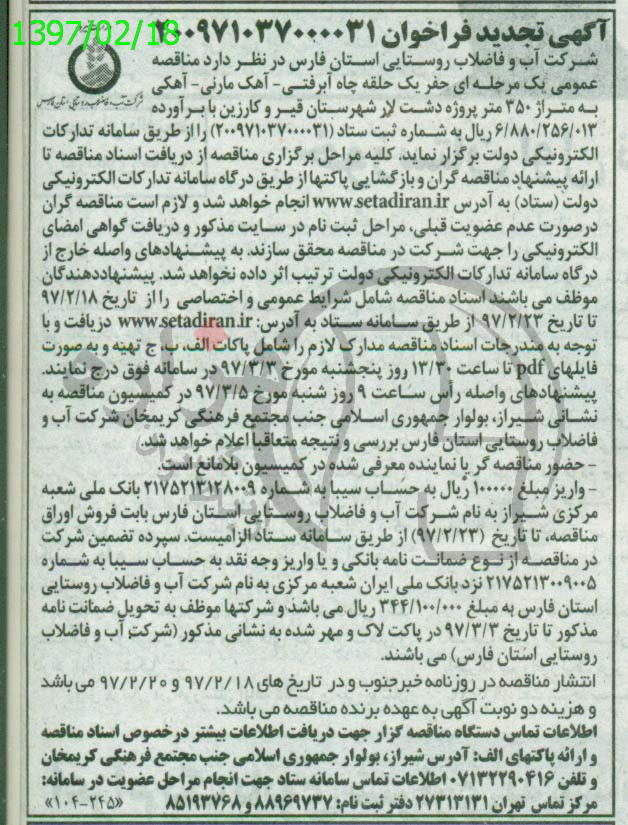 1397/02/18
آگهی تجدید فراخوان ۲۰۰۹۷۱۰۳۷۰۰۰۰۳۱
شرکت آب و فاضلاب روستایی استان فارس در نظر دارد مناقصه
عمومی یک مرحله ای حفر یک حلقه چاه آبرفتی- آهک مارنی- آهکی
به متراژ ۳۵۰ متر پروژه دشت لار شهرستان قیر و کارزین با برآورده
۶/۸۸۰/۲۵۶/۰۱۳ ریال به شماره ثبت ستاد (۲۰۰۹۷۱۰۳۷۰۰۰۰۳۱) را از طریق سامانه تدارکات
الکترونیکی دولت برگزار نماید. کلیه مراحل برگزاری مناقصه از دریافت اسناد مناقصه تا
ارائه پیشنهاد مناقصه گران و بازگشایی پاکتها از طریق درگاه سامانه تدارکات الکترونیکی
دولت (ستاد) به آدرس www.setadiran.ir انجام خواهد شد و لازم است مناقصه گران
درصورت عدم عضویت قبلی، مراحل ثبت نام در سایت مذکور و دریافت گواهی امضای
الکترونیکی را جهت شرکت در مناقصه محقق سازند. به پیشنهادهای واصله خارج از
درگاه سامانه تدارکات الکترونیکی دولت ترتیب اثر داده نخواهد شد. پیشنهاددهندگان
موظف می باشند اسناد مناقصه شامل شرایط عمومی و اختصاصی را از تاریخ ۹۷/۲/۱۸
تا تاریخ ۹۷/۲/۲۳ از طریق سامانه ستاد به آدرس: www.setadiran.ir دریافت و با
توجه به مندرجات اسناد مناقصه مدارک لازم را شامل پاکات الف، ب، ج تهیه و به صورت
فایلهای pdf تا ساعت ۱۳/۳۰ روز پنجشنبه مورخ ۹۷/۳/۳ در سامانه فوق درج نمایند.
پیشنهادهای واصله رأس ساعت ۹ روز شنبه مورخ ۹۷/۳/۵ در کمیسیون مناقصه به
نشانی شیراز، بولوار جمهوری اسلامی جنب مجتمع فرهنگی کریمخان شرکت آب و
فاضلاب روستایی استان فارس بررسی و نتیجه متعاقبا اعلام خواهد شد.
- حضور مناقصه گر یا نماینده معرفی شده در کمیسیون بلامانع است.
- واریز مبلغ ۱۰۰۰۰۰۰ ریال به حساب سیبا به شماره ۲۱۷۵۲۱۳۱۲۸۰۰۹ بانک ملی شعبه
مرکزی شیراز به نام شرکت آب و فاضلاب روستایی استان فارس بابت فروش اوراق
مناقصه، تا تاریخ (۹۷/۲/۲۳) از طریق سامانه ستاد الزامیست. سپرده تضمین شرکت
در مناقصه از نوع ضمانت نامه بانکی و یا واریز وجه نقد به حساب سیبا به شماره
۲۱۷۵۲۱۳۰۰۹۰۰۵ نزد بانک ملی ایران شعبه مرکزی به نام شرکت آب و فاضلاب روستایی
استان فارس به مبلغ ۳۴۴/۱۰۰/۰۰۰ ریال می باشد و شرکتها موظف به تحویل ضمانت نامه
مذکور تا تاریخ ۹۷/۳/۳ در پاکت لاک و مهر شده به نشانی مذکور (شرکت آب و فاضلاب
روستایی استان فارس) می باشند.
انتشار مناقصه در روزنامه خبرجنوب و در تاریخ های ۹۷/۲/۱۸ و ۹۷/۲/۲۰ می باشد
و هزینه دو نوبت آگهی به عهده برنده مناقصه می باشد.
اطلاعات تماس دستگاه مناقصه گزار جهت دریافت اطلاعات بیشتر درخصوص اسناد مناقصه
و ارائه پاکتهای الف: آدرس شیراز، بولوار جمهوری اسلامی جنب مجتمع فرهنگی کریمخان
و تلفن ۰۷۱۳۲۲۹۰۴۱۶ اطلاعات تماس سامانه ستاد جهت انجام مراحل عضویت در سامانه:
مرکز تماس تهران ۲۷۳۱۳۱۳۱ دفتر ثبت نام: ۸۸۹۶۹۷۳۷ و ۸۵۱۹۳۷۶۸ «۱۰۴-۲۴۵»